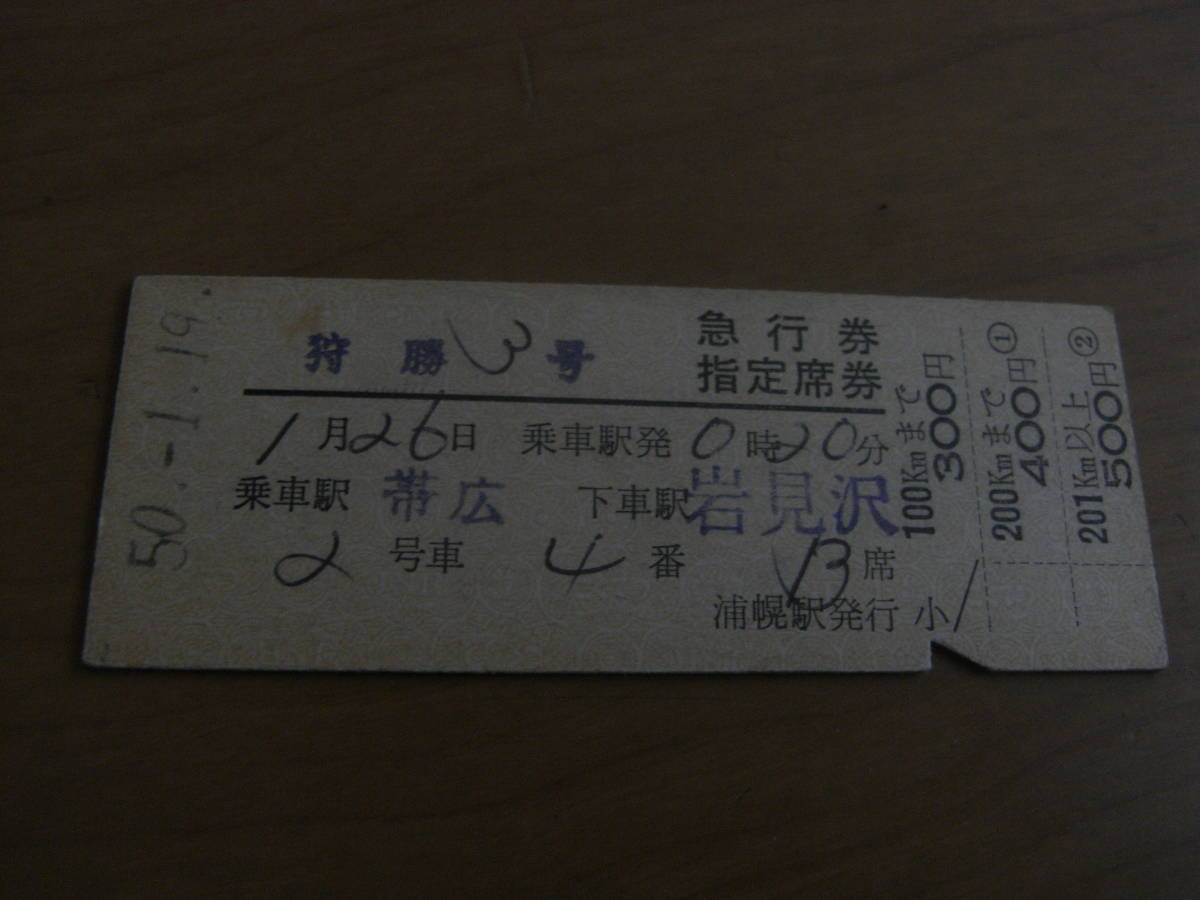 50.-1.19.
狩勝3号 急行券
指定席券
1月26日 乗車駅発0時20分
乗車駅 帯広 下車駅 岩見沢
2号車 4番 B席
浦幌駅発行 小1
100Kmまで 300円
200Kmまで 400円①
201Km以上 500円②